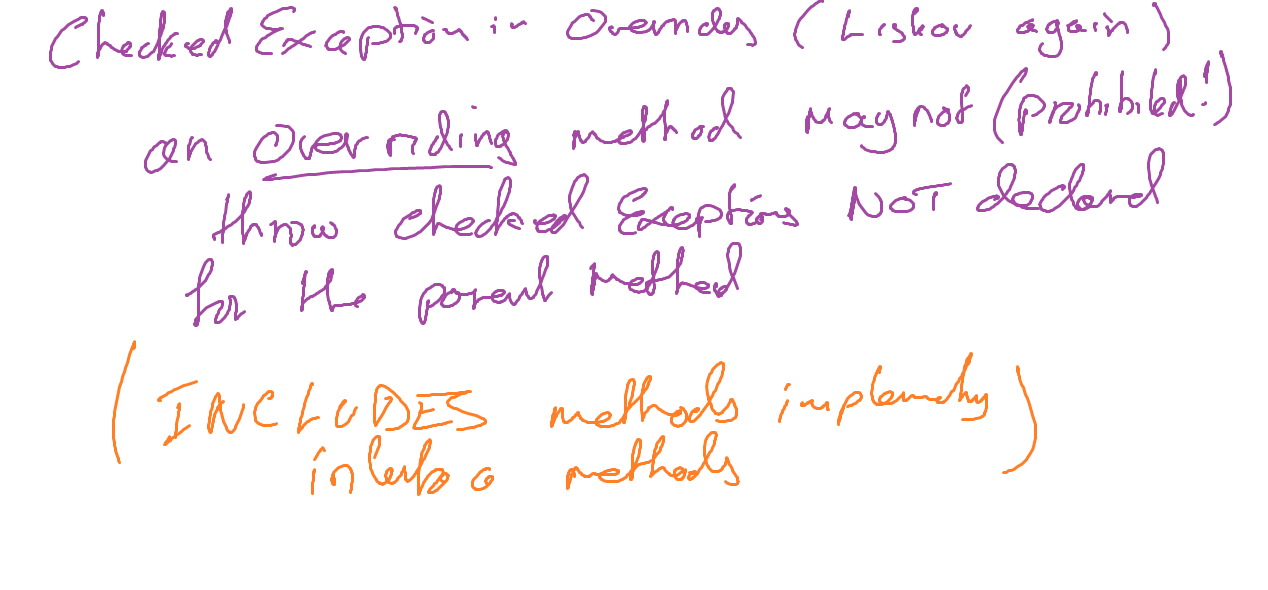 Checked Exception in Overrides (Liskov again)
an overriding method may not (prohibited!)
throw checked Exceptions NOT declared
for the parent method
(INCLUDES methods implementing)
interface methods